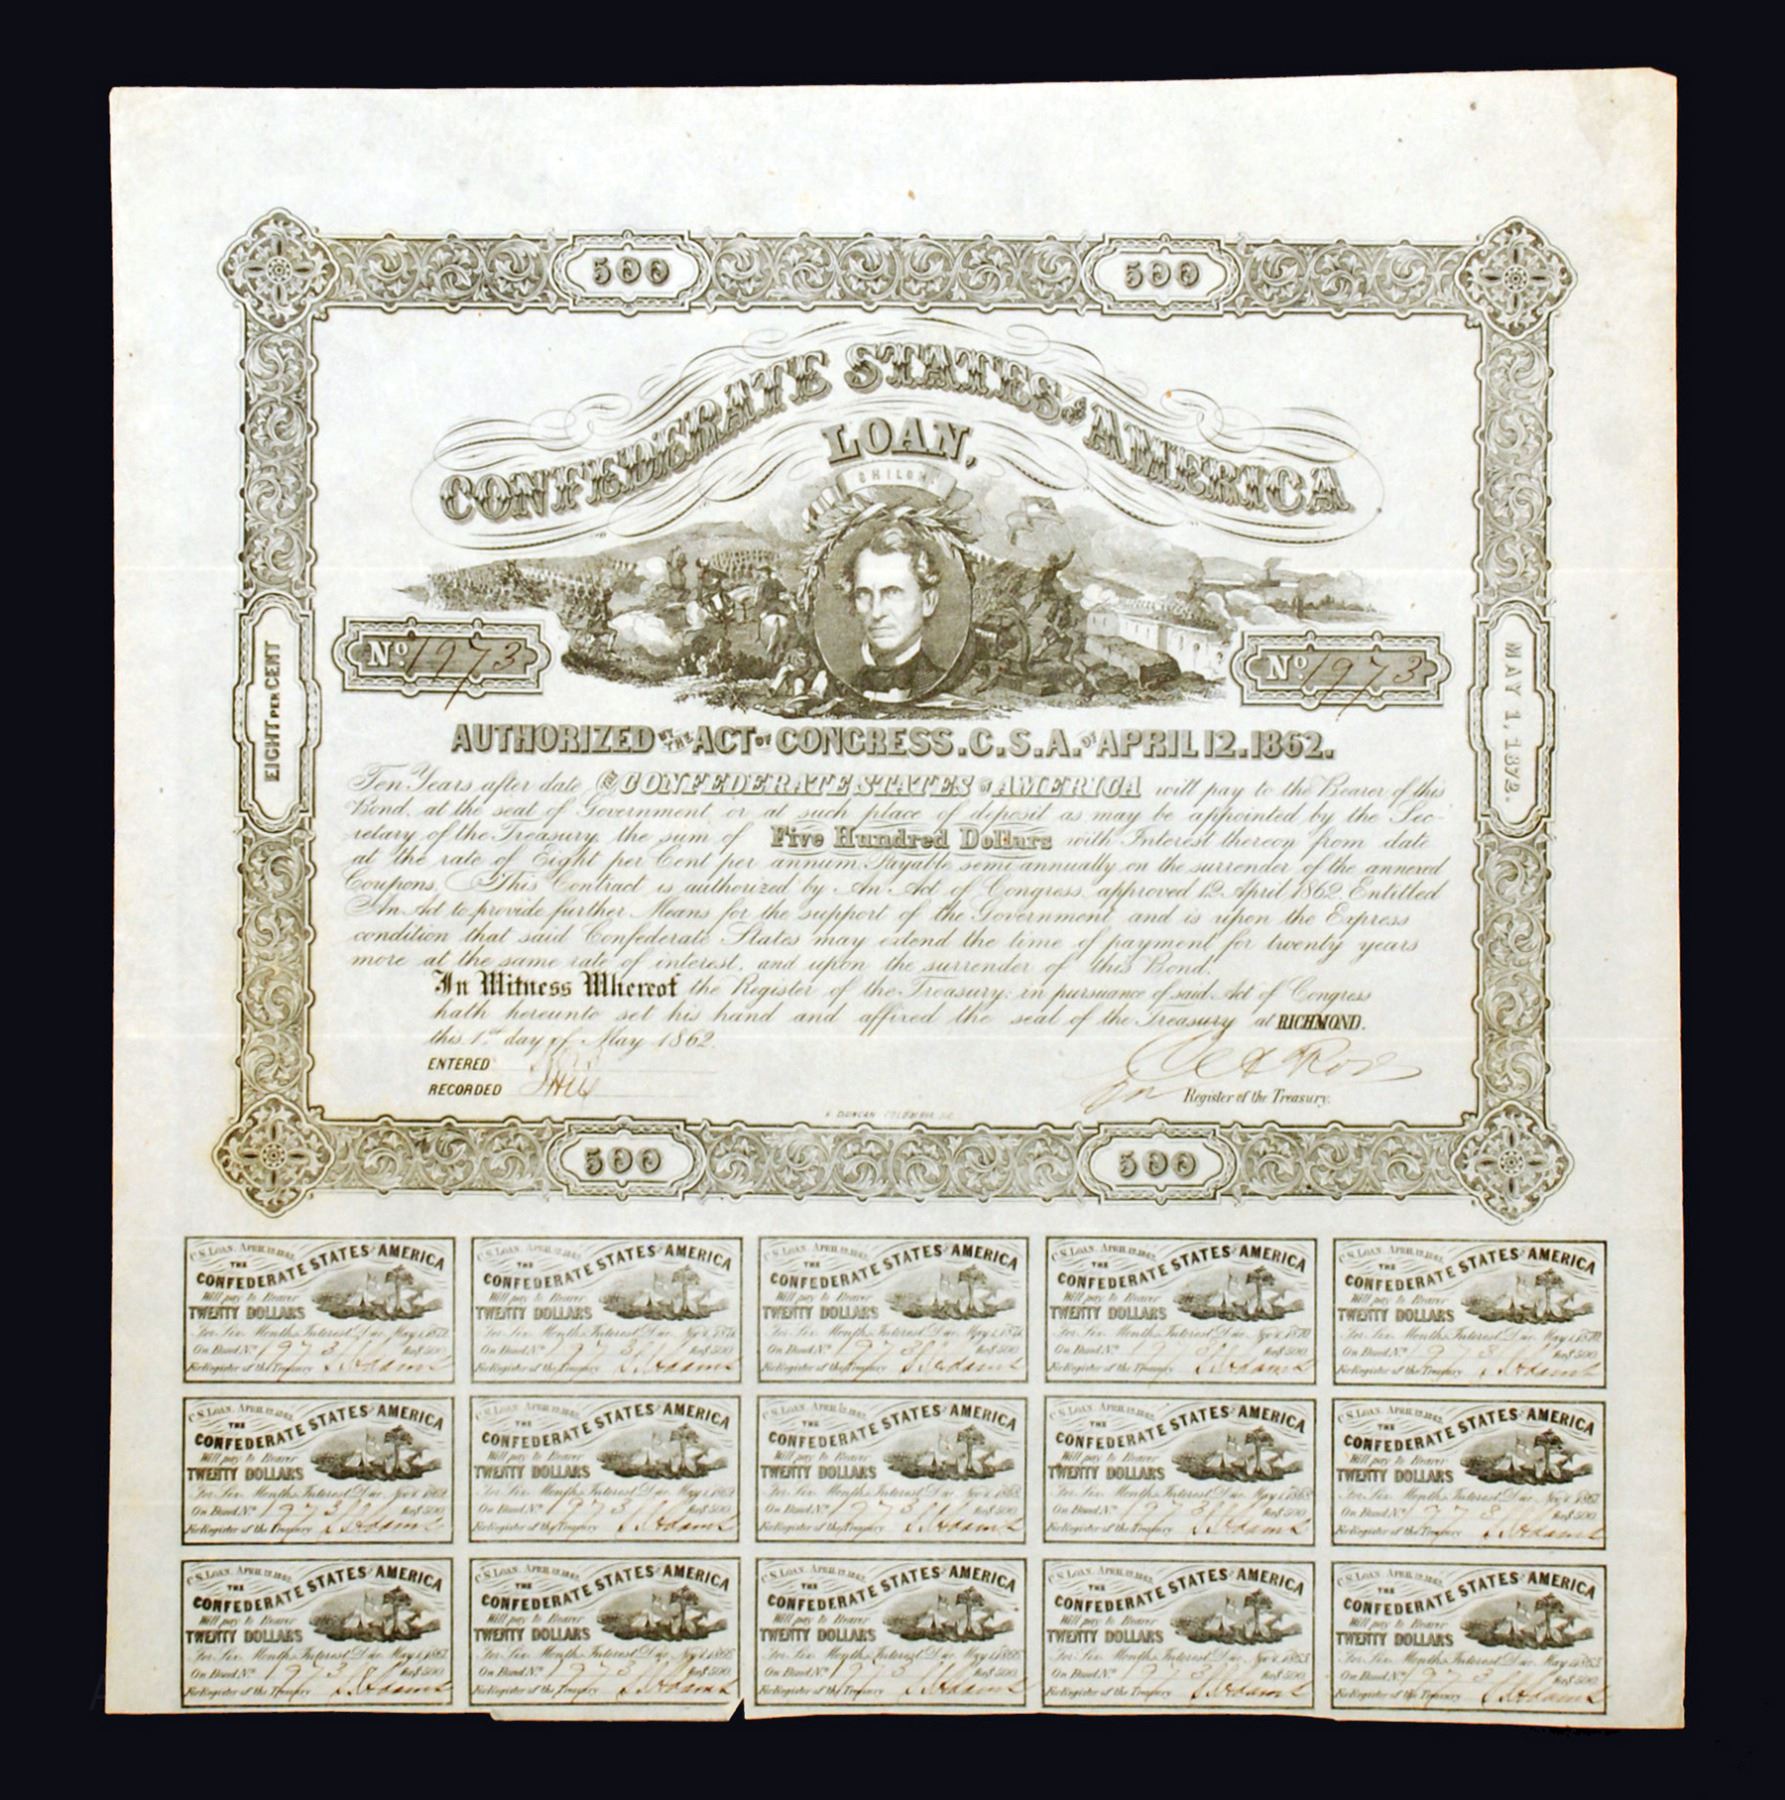 500 500
CONFEDERATE STATES OF AMERICA
LOAN,
SHILOH
No. 1973 No. 1973
EIGHT PER CENT
MAY 1, 1872.
AUTHORIZED BY THE ACT OF CONGRESS. C. S. A. OF APRIL 12. 1862.
Ten Years after date THE CONFEDERATE STATES OF AMERICA will pay to the Bearer of this
Bond, at the seat of Government, or at such place of deposit as may be appointed by the Sec-
retary of the Treasury, the sum of Five Hundred Dollars with Interest thereon from date
at the rate of Eight per Cent per annum Payable semi annually on the surrender of the annexed
Coupons. This Contract is authorized by An Act of Congress, approved 12 April 1862. Entitled
An Act to provide further Means for the support of the Government and is upon the Express
condition that said Confederate States may extend the time of payment for twenty years
more at the same rate of interest, and upon the surrender of this Bond.
In Witness Whereof the Register of the Treasury; in pursuance of said Act of Congress
hath hereunto set his hand and affixed the seal of the Treasury at RICHMOND.
this 1st day of May 1862.
ENTERED
RECORDED
Register of the Treasury.
DUNCAN COLUMBIA, S.C.
500 500
C.S. LOAN, APRIL 12, 1862.
THE CONFEDERATE STATES OF AMERICA
Will pay to Bearer
TWENTY DOLLARS
For Six Months Interest Due
On Bond No. 1973 for $500
For Register of the Treasury
C.S. LOAN, APRIL 12, 1862.
THE CONFEDERATE STATES OF AMERICA
Will pay to Bearer
TWENTY DOLLARS
For Six Months Interest Due
On Bond No. 1973 for $500
For Register of the Treasury
C.S. LOAN, APRIL 12, 1862.
THE CONFEDERATE STATES OF AMERICA
Will pay to Bearer
TWENTY DOLLARS
For Six Months Interest Due
On Bond No. 1973 for $500
For Register of the Treasury
C.S. LOAN, APRIL 12, 1862.
THE CONFEDERATE STATES OF AMERICA
Will pay to Bearer
TWENTY DOLLARS
For Six Months Interest Due
On Bond No. 1973 for $500
For Register of the Treasury
C.S. LOAN, APRIL 12, 1862.
THE CONFEDERATE STATES OF AMERICA
Will pay to Bearer
TWENTY DOLLARS
For Six Months Interest Due
On Bond No. 1973 for $500
For Register of the Treasury
C.S. LOAN, APRIL 12, 1862.
THE CONFEDERATE STATES OF AMERICA
Will pay to Bearer
TWENTY DOLLARS
For Six Months Interest Due
On Bond No. 1973 for $500
For Register of the Treasury
C.S. LOAN, APRIL 12, 1862.
THE CONFEDERATE STATES OF AMERICA
Will pay to Bearer
TWENTY DOLLARS
For Six Months Interest Due
On Bond No. 1973 for $500
For Register of the Treasury
C.S. LOAN, APRIL 12, 1862.
THE CONFEDERATE STATES OF AMERICA
Will pay to Bearer
TWENTY DOLLARS
For Six Months Interest Due
On Bond No. 1973 for $500
For Register of the Treasury
C.S. LOAN, APRIL 12, 1862.
THE CONFEDERATE STATES OF AMERICA
Will pay to Bearer
TWENTY DOLLARS
For Six Months Interest Due
On Bond No. 1973 for $500
For Register of the Treasury
C.S. LOAN, APRIL 12, 1862.
THE CONFEDERATE STATES OF AMERICA
Will pay to Bearer
TWENTY DOLLARS
For Six Months Interest Due
On Bond No. 1973 for $500
For Register of the Treasury
C.S. LOAN, APRIL 12, 1862.
THE CONFEDERATE STATES OF AMERICA
Will pay to Bearer
TWENTY DOLLARS
For Six Months Interest Due
On Bond No. 1973 for $500
For Register of the Treasury
C.S. LOAN, APRIL 12, 1862.
THE CONFEDERATE STATES OF AMERICA
Will pay to Bearer
TWENTY DOLLARS
For Six Months Interest Due
On Bond No. 1973 for $500
For Register of the Treasury
C.S. LOAN, APRIL 12, 1862.
THE CONFEDERATE STATES OF AMERICA
Will pay to Bearer
TWENTY DOLLARS
For Six Months Interest Due
On Bond No. 1973 for $500
For Register of the Treasury
C.S. LOAN, APRIL 12, 1862.
THE CONFEDERATE STATES OF AMERICA
Will pay to Bearer
TWENTY DOLLARS
For Six Months Interest Due
On Bond No. 1973 for $500
For Register of the Treasury
C.S. LOAN, APRIL 12, 1862.
THE CONFEDERATE STATES OF AMERICA
Will pay to Bearer
TWENTY DOLLARS
For Six Months Interest Due
On Bond No. 1973 for $500
For Register of the Treasury